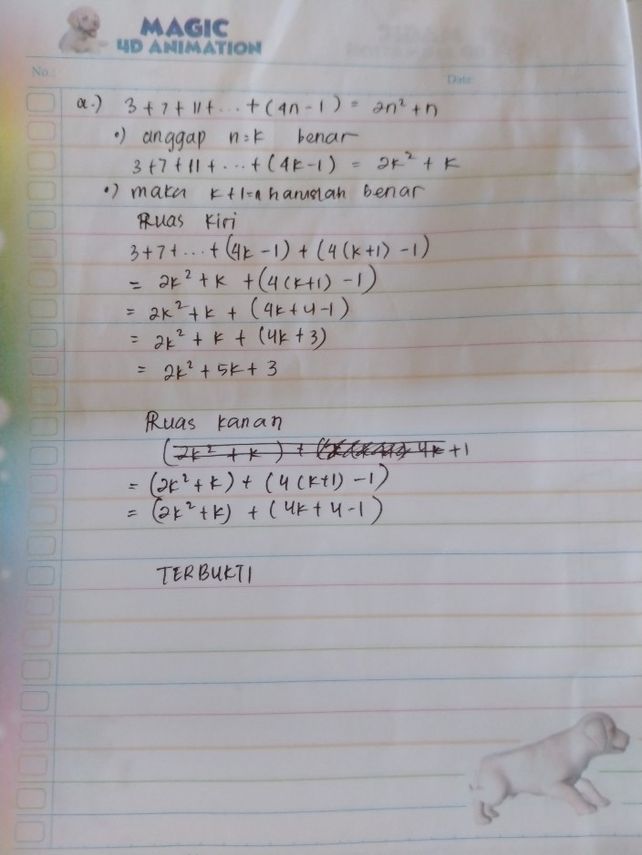 MAGIC
4D ANIMATION
No.:
Date:
a.) 3+7+11+...+(4n-1) = 2n²+n
•) anggap n=k benar
3+7+11+...+(4k-1) = 2k²+k
•) maka k+1=n haruslah benar
Ruas kiri
3+7+...+(4k-1)+(4(k+1)-1)
= 2k²+k+(4(k+1)-1)
= 2k²+k+(4k+4-1)
= 2k²+k+(4k+3)
= 2k²+5k+3
Ruas kanan
(2k²+k)+ 4k+1
= (2k²+k)+(4(k+1)-1)
= (2k²+k)+(4k+4-1)
TERBUKTI